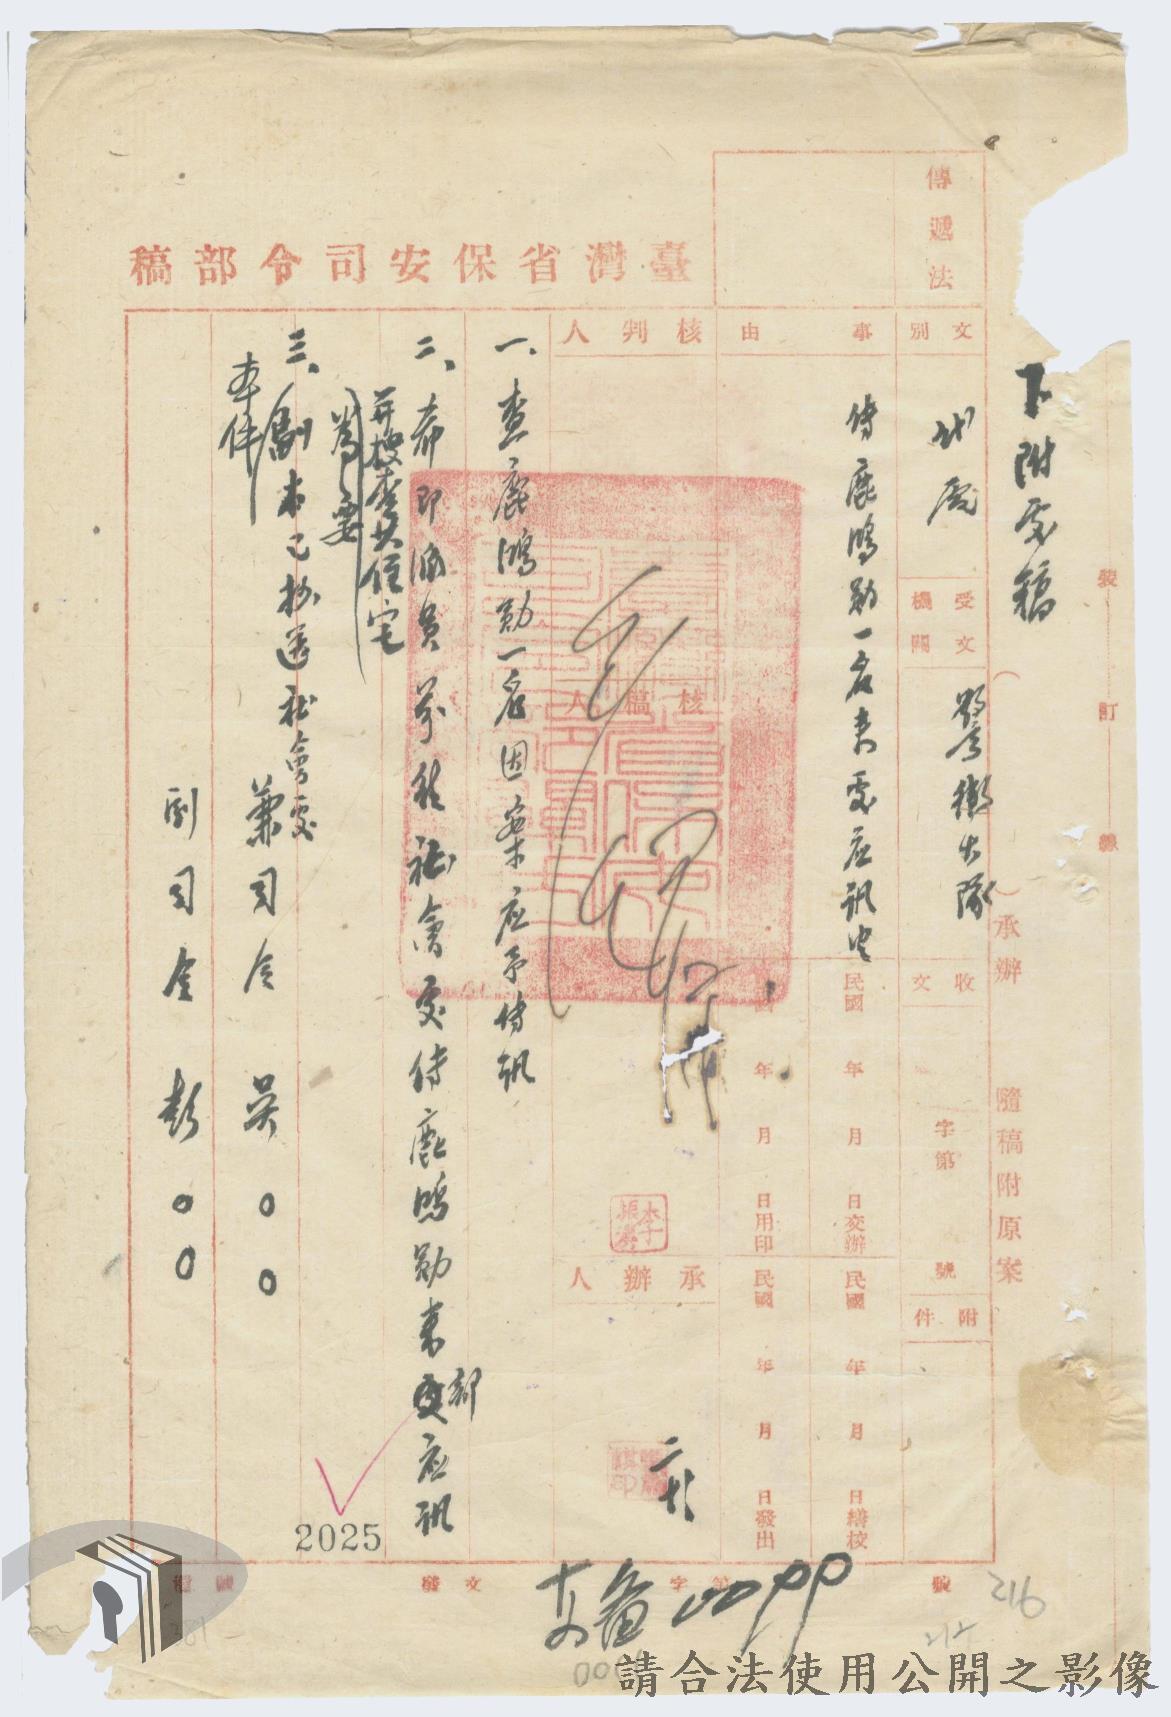 傳遞法
臺灣省保安司令部稿
下附處稿
裝訂線
文別
代電
受文機關
警衛大隊
收文
字第
號
附件
事由
傳鹿鴻勛一名來處应訊由
民國 年 月 日交辦
民國 年 月 日繕校
年 月 日用印
民國 年 月 日發出
核判人
核稿人
承辦人
( )承辦
隨稿附原案
一、查鹿鴻勛一名因案应予傳訊
二、希即派員前往社會處傳鹿鴻勛來部应訊
并搜查其住宅
為要
三、副本已抄送社會處
本件
兼司令 吳○○
副司令 彭○○
2025
發文
字第
號
216
212
請合法使用公開之影像